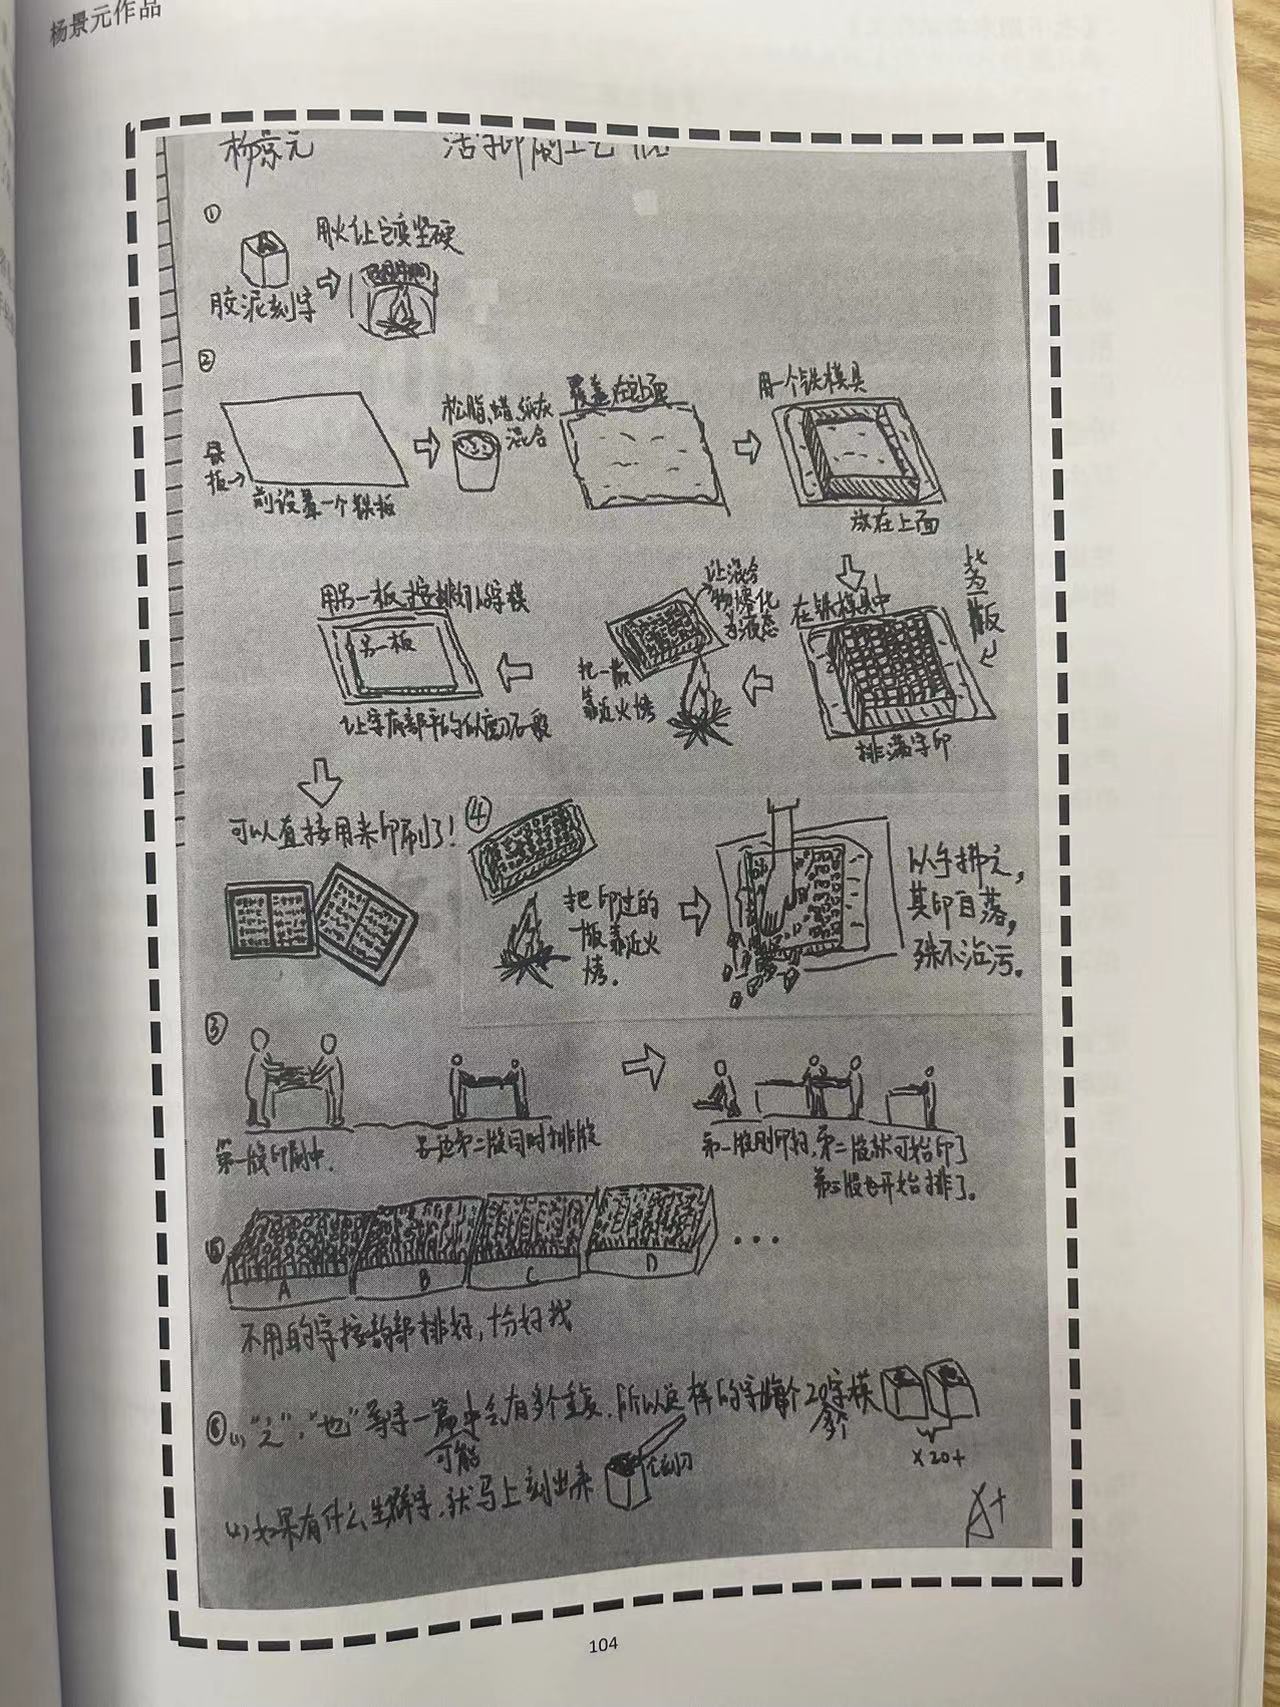 杨景元作品
杨景元 活字印刷工艺
①
用火让它变坚硬
胶泥刻字
②
板→
前设置一个铁板
松脂、蜡、纸灰
混合
覆盖在上面
用一个铁模具
放在上面
在铁模具中
排满字印
为一版
让混合
物熔化
为液态
把一版
靠近火烤
用另一板按排好的字模
另一板
可以直接用来印刷了!
④
把印过的
一版靠近火
烤。
以手拂之,
其印自落,
殊不沾污。
③
第一版印刷中.
另一边第二版同时排版
第一版刚印好,第二版就可始印了
第三版也开始排了。
⑤
A B C D ...
不用的字按韵部排好,恰好找
⑥(1)“之”,“也”等字一篇中会有多个重复.所以这样的字每个20字模
可能
多个
×20+
(2)如果有什么生僻字,就马上刻出来
刻刀
A+
104